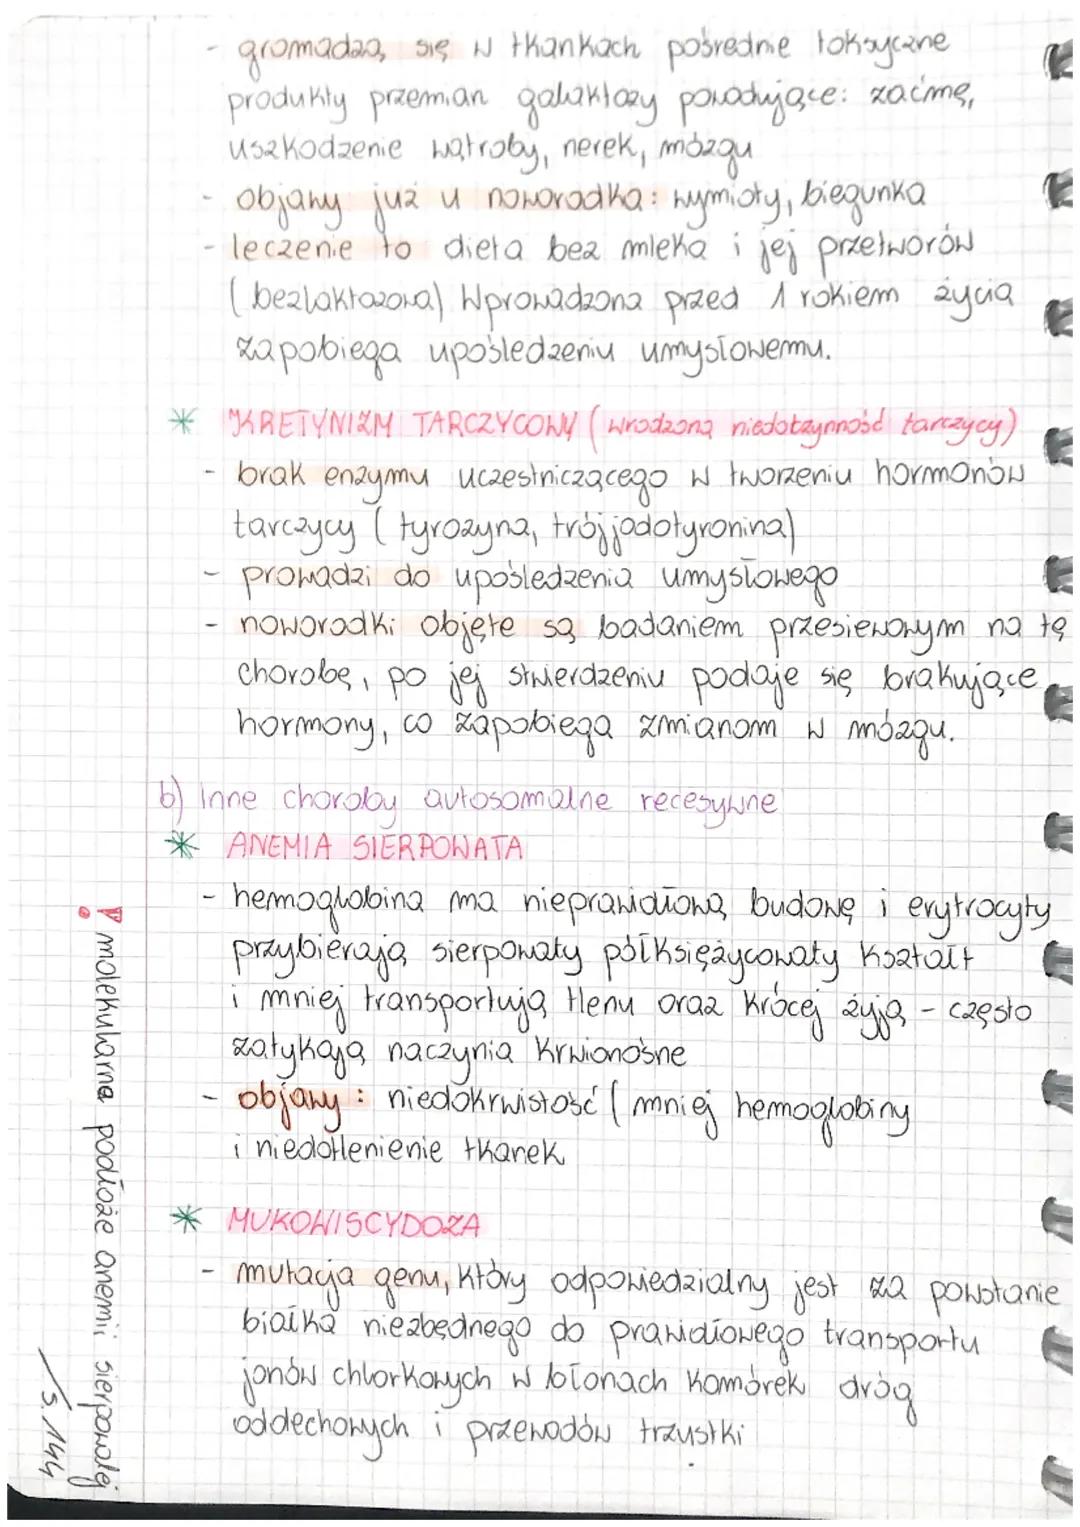 - gromadzą się w tkankach pośrednie toksyczne
produkty przemian galaktozy powodujące: zaćmę,
uszkodzenie wątroby, nerek, mózgu
- objawy już u noworodka: wymioty, biegunka
- leczenie to dieta bez mleka i jej przetworów
(bezlaktozowa) Wprowadzona przed 1 rokiem życia
zapobiega upośledzeniu umysłowemu.
* KRETYNIZM TARCZYCOWY (wrodzona niedoczynność tarczycy)
- brak enzymu uczestniczącego w tworzeniu hormonów
tarczycy (tyrozyna, trójjodotyronina)
- prowadzi do upośledzenia umysłowego
- noworodki objęte są badaniem przesiewowym na tę
chorobę, po jej stwierdzeniu podaje się brakujące
hormony, co zapobiega zmianom w mózgu.
b) Inne choroby autosomalne recesywne
* ANEMIA SIERPOWATA
- hemoglobina ma nieprawidłową budowę i erytrocyty
przybierają sierpowaty półksiężycowaty kształt
i mniej transportują tlenu oraz krócej żyją - często
zatykają naczynia krwionośne
- objawy: niedokrwistość (mniej hemoglobiny
i niedotlenienie tkanek
* MUKOWISCYDOZA
- mutacja genu, który odpowiedzialny jest za powstanie
białka niezbędnego do prawidłowego transportu
jonów chlorkowych w błonach komórek dróg
oddechowych i przewodów trzustki
! molekularna podłoże anemii sierpowatej
/s.144